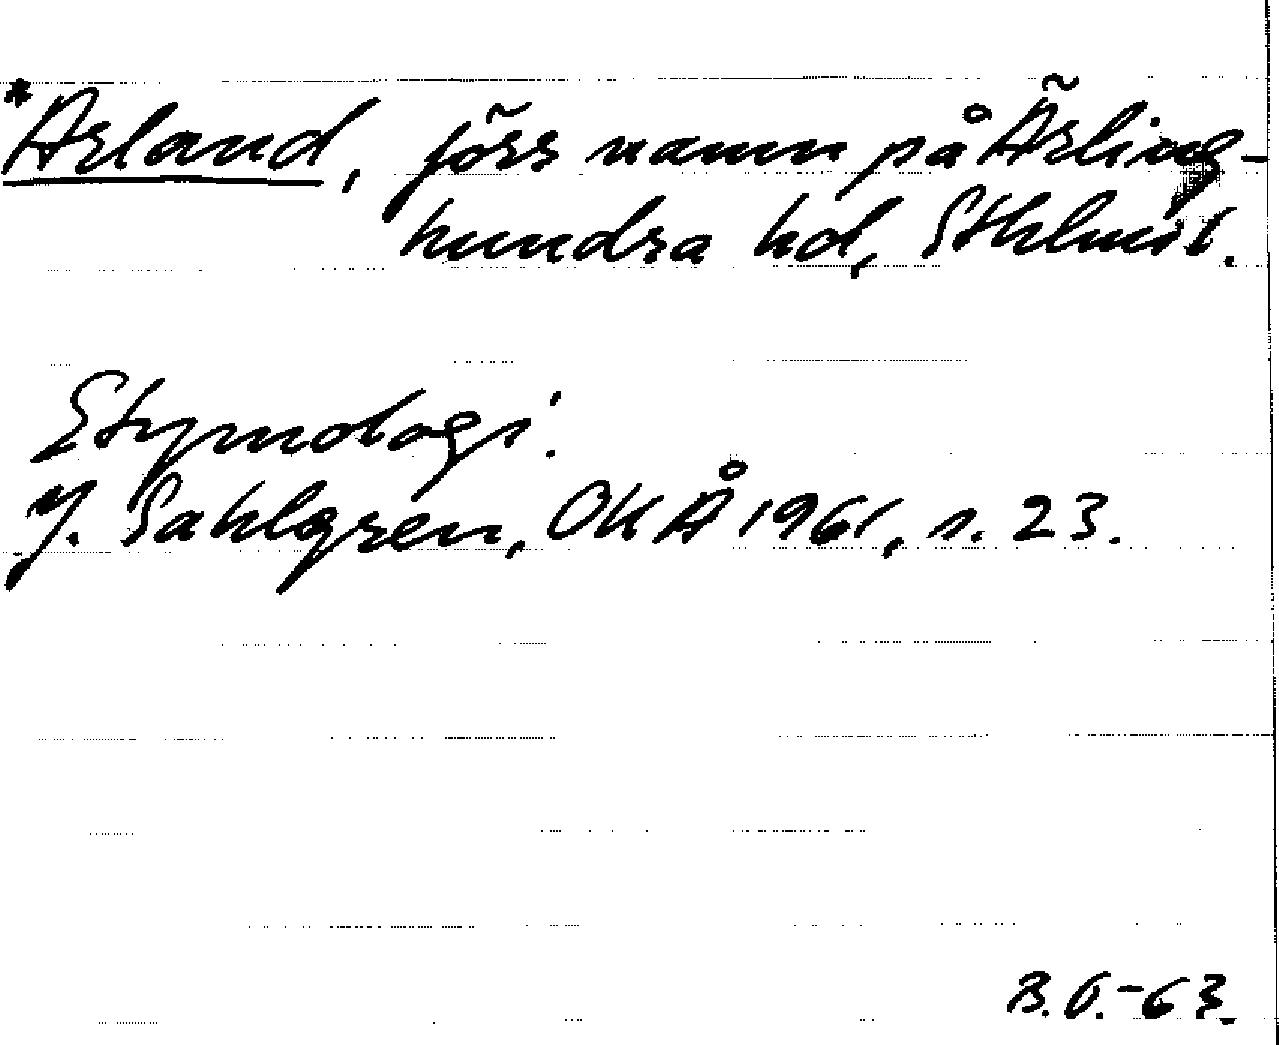 *Arland, förr namn på Ärling-
hundra hd, Sthlms l.
Etymologi:
J. Sahlgren, OKÅ 1961, s. 23.
B.O.-63.